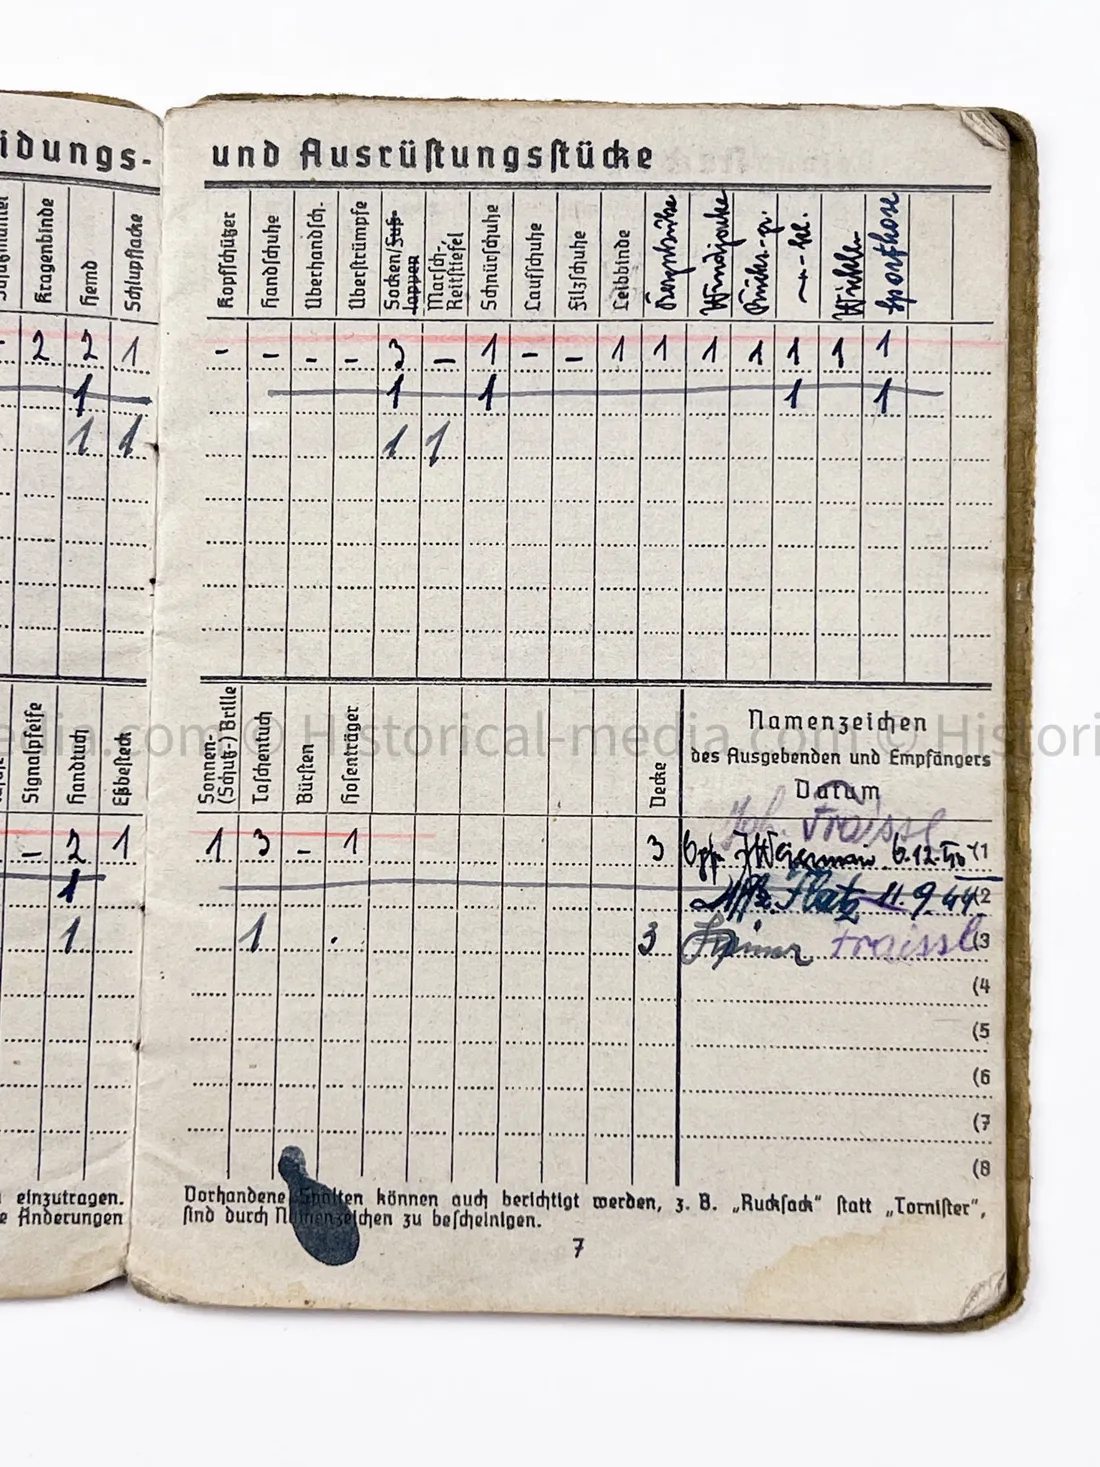 idungs-
und Ausrüstungsstücke
Kragenbinde
Hemd
Schlupfjacke
Kopfschützer
Handschuhe
Überhandsch.
Überstrümpfe
Socken/Fuß-
lappen
Marsch-,
Reitstiefel
Schnürschuhe
Laufschuhe
Filzschuhe
Leibbinde
Windjacke
Sporthose
- 2 2 1 - - - - 3 - 1 - - 1 1 1 1 1 1 1
1 1 1 1 1
1 1 1 1
Signalpfeife
Handtuch
Eßbesteck
Sonnen-
(Schutz-) Brille
Taschentuch
Bürsten
Hosenträger
Decke
Namenzeichen
des Ausgebenden und Empfängers
Datum
Joh. Fraissl
- 2 1 1 3 - 1 3 6.12.40 (1
1 Uffz. Platz 11.9.44 (2
1 1 3 Fraissl (3
(4
(5
(6
(7
(8
einzutragen.
e Änderungen
Vorhandene Spalten können auch berichtigt werden, z. B. „Rucksack“ statt „Tornister“,
sind durch Namenzeichen zu bescheinigen.
7
edia.com © Historical-media.com © Histori